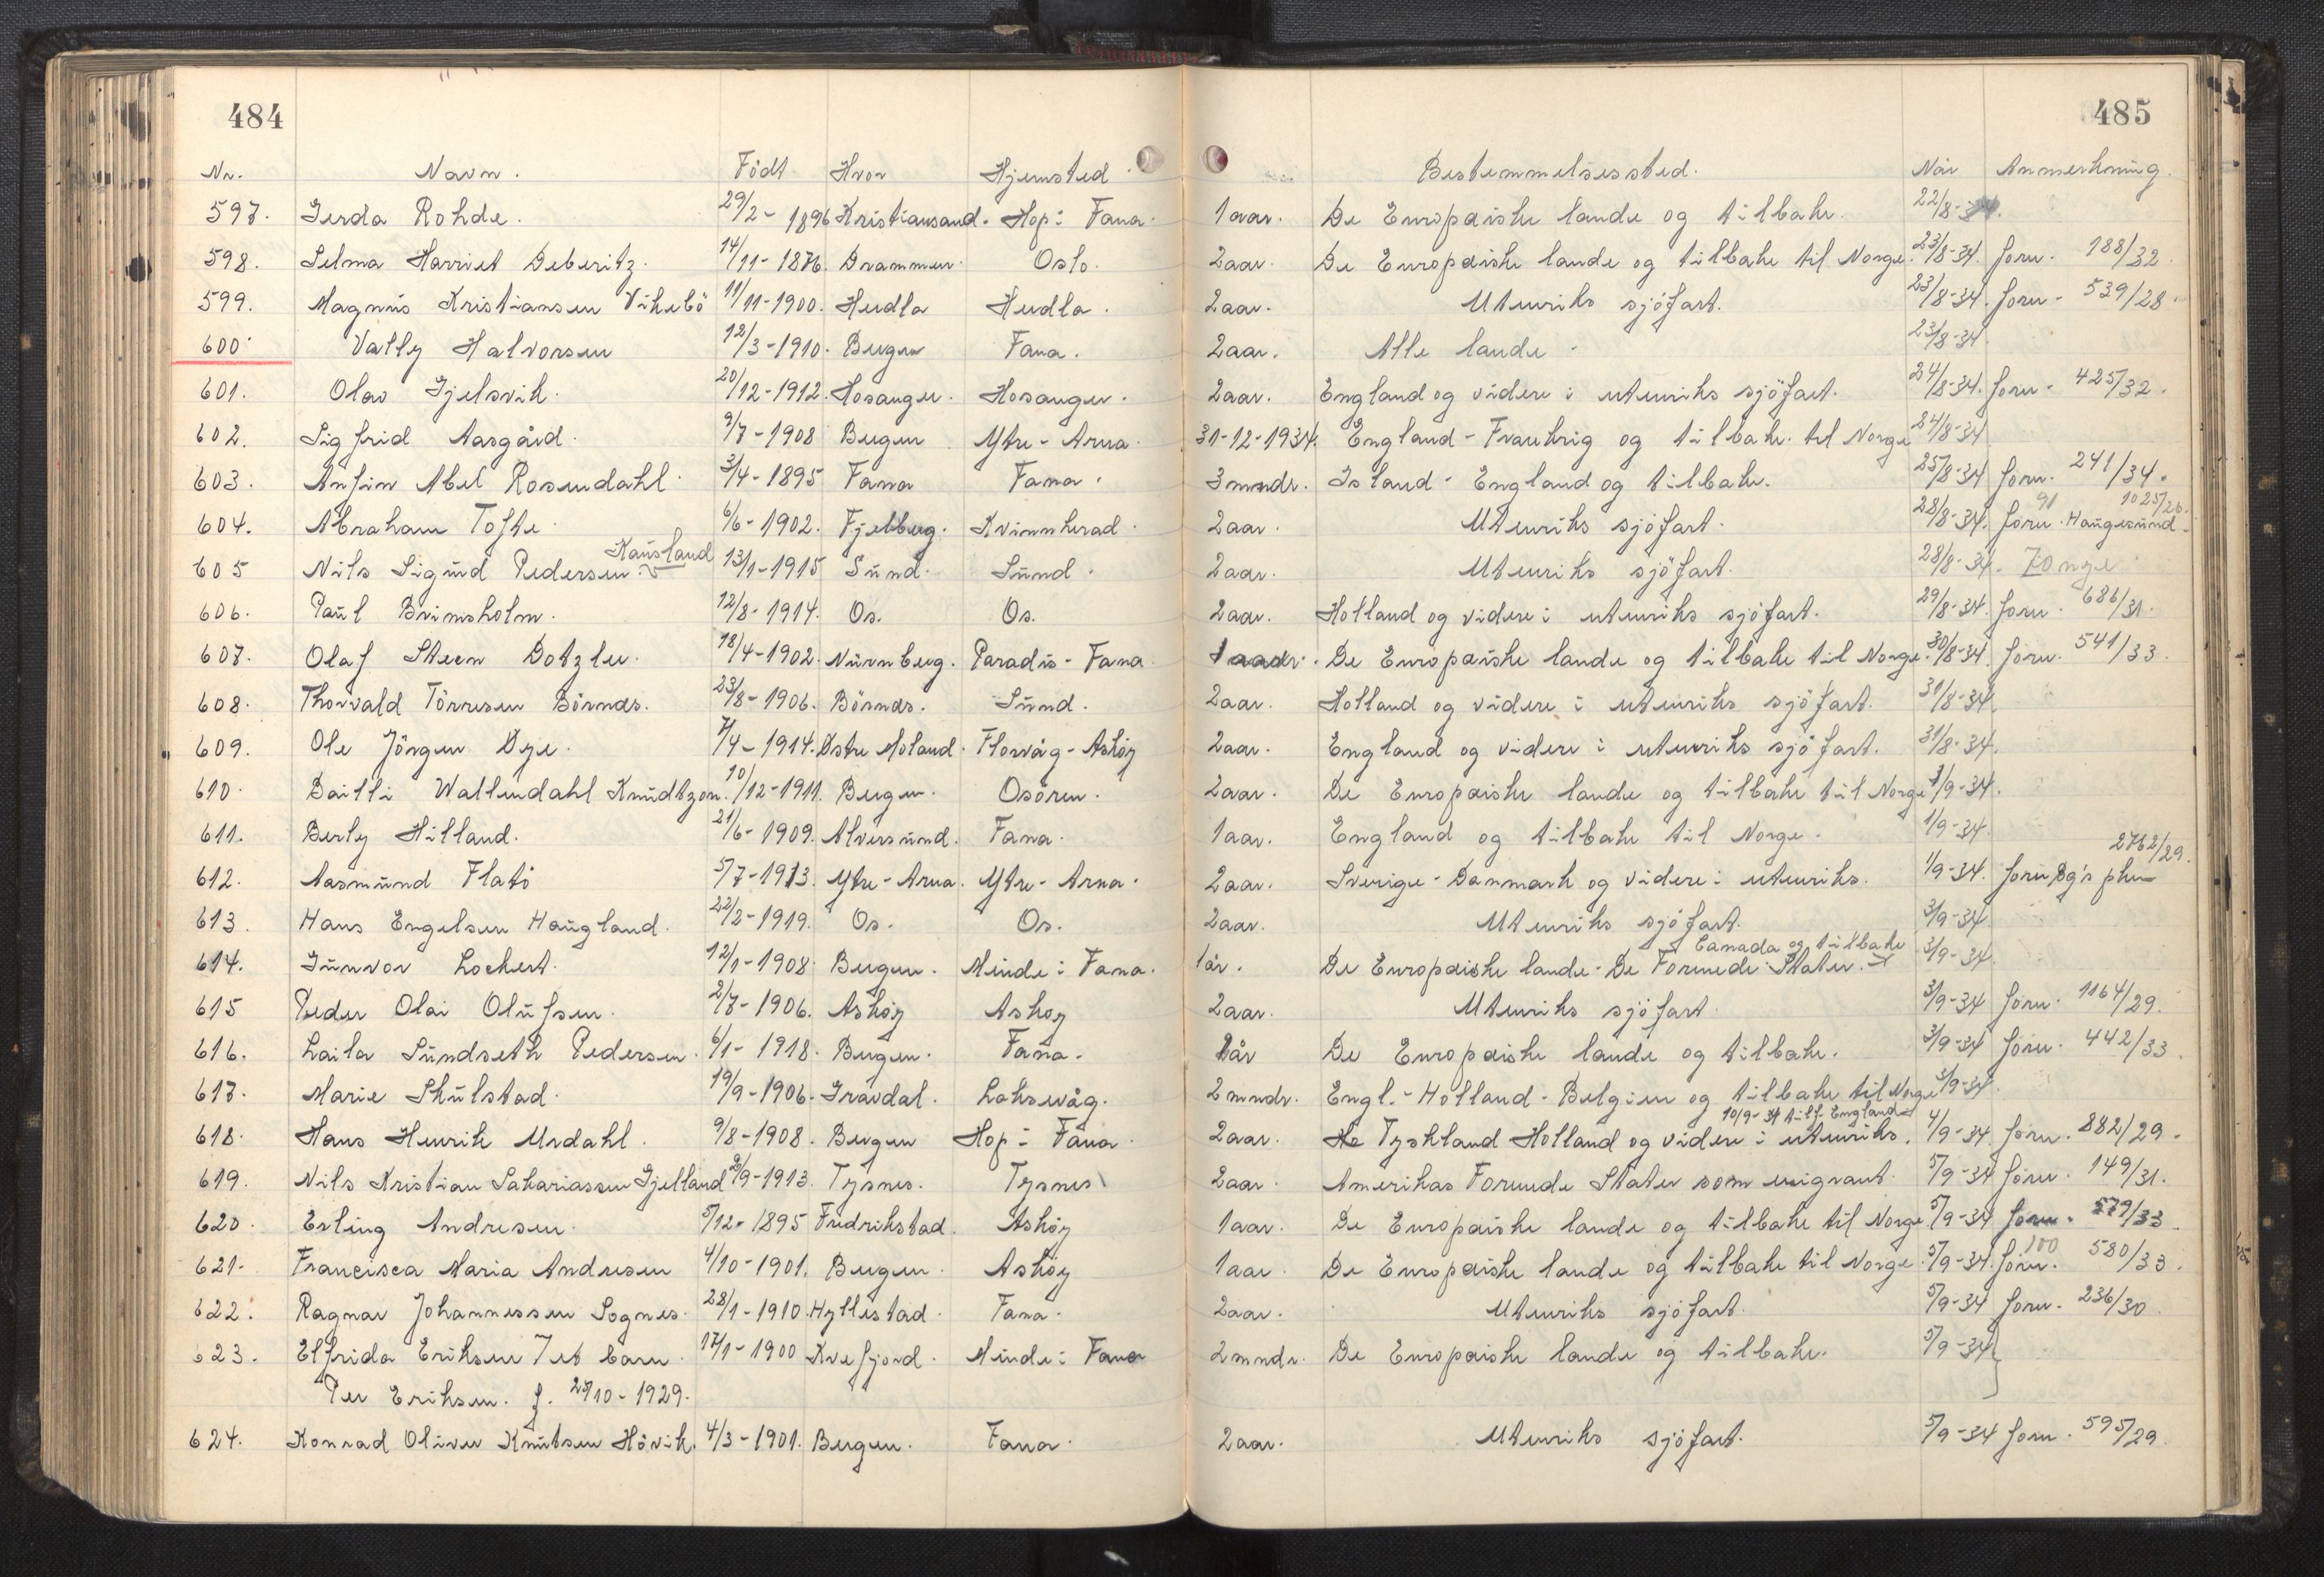 484
485
Nr. Navn. Födt Hvor Hjemsted Bestemmelsessted. Når Anmerkning.
597. Gerda Rohde. 29/2-1896 Kristiansand. Hop i Fana. 1 aar. De Europæiske lande og tilbake. 22/8-34.
598. Selma Harriet Deberitz. 14/11-1876. Drammen. Oslo. 2 aar. De Europæiske lande og tilbake til Norge. 23/8-34. forn. 188/32.
599. Magnus Kristiansen Vikebö 11/11-1900. Herdla Herdla. 2 aar. Utenriks sjöfart. 23/8-34. forn. 539/28.
600. Vally Halvorsen 12/3-1910. Bergen Fana. 2 aar. Alle lande. 23/8-34.
601. Olav Gjelsvik. 20/12-1912. Hosanger. Hosanger. 2 aar. England og videre i utenriks sjöfart. 24/8-34. forn. 425/32.
602. Sigfrid Aasgård. 9/7-1908 Bergen Ytre-Arna. 31-12-1934. England-Frankrig og tilbake til Norge 24/8-34
603. Anfin Abel Rosendahl. 3/4-1895 Fana Fana. 3 mndr. Island-England og tilbake. 25/8-34 forn. 241/34.
91 1025/26.
604. Abraham Tofte. 6/6-1902. Fjelberg. Kvinnherad. 2 aar. Utenriks sjöfart. 28/8-34. forn. Haugesund.
Kausland
605 Nils Sigurd Pedersen. 13/1-1915 Sund. Sund. 2 aar. Utenriks sjöfart. 28/8-34.
606. Paul Brimsholm. 12/8-1914. Os. Os. 2 aar. Holland og videre i utenriks sjöfart. 29/8-34. forn. 686/31.
607. Olaf Steen Dotzler. 18/4-1902. Nürnberg. Paradis-Fana. 1 aar. De Europæiske lande og tilbake til Norge. 30/8-34 forn. 541/33.
608. Thorvald Törresen Börnes. 23/8-1906. Börnes. Sund. 2 aar. Holland og videre i utenriks sjöfart. 31/8-34.
609. Ole Jörgen Dye. 7/4-1914. Østre Moland. Florvåg-Askøy 2 aar. England og videre i utenriks sjöfart. 31/8-34.
610. Wallendahl Knudtzon. 10/12-1911. Bergen. Osören. 2 aar. De Europæiske lande og tilbake til Norge 1/9-34.
611. Berly Hilland. 21/6-1909. Alversund. Fana. 1 aar. England og tilbake til Norge. 1/9-34.
2762/29.
612. Aasmund Flatö 5/7-1913. Ytre-Arna. Ytre-Arna. 2 aar. Sverige-Danmark og videre i utenriks. 1/9-34. forn Bg's pk
613. Hans Engelsen Haugland. 22/2-1919. Os. Os. 2 aar. Utenriks sjöfart. 3/9-34.
Canada og tilbake
614. Gunvor Lockert. 12/1-1908. Bergen. Minde i Fana. 1 år. De Europæiske lande-De Forenede Stater. 3/9-34.
615 Peder Olai Olufsen. 2/7-1906. Askøy Askøy 2 aar. Utenriks sjöfart. 3/9-34 forn. 1164/29.
616. Laila Sundseth Pedersen. 6/1-1918. Bergen. Fana. 1 år De Europæiske lande og tilbake. 3/9-34 forn. 442/33.
617. Marie Skulstad. 19/9-1906. Gravdal. Laksevåg. 2 mndr. Engl.-Holland-Belgien og tilbake til Norge 3/9-34.
10/9-34 till. England
618. Hans Henrik Urdahl. 9/8-1908. Bergen Hop i Fana. 2 aar. Tyskland Holland og videre i utenriks. 4/9-34 forn. 882/29.
619. Nils Kristian Sakariassen Gjelland /9-1913. Tysnes. Tysnes 2 aar. Amerikas Forenede Stater som emigrant. 5/9-34 forn. 149/31.
620. Erling Andresen. 5/12-1895 Fredrikstad. Askøy 1 aar. De Europæiske lande og tilbake til Norge. 5/9-34 forn. 579/33.
100
621. Francisca Maria Andresen 4/10-1901. Bergen. Askøy 1 aar. De Europæiske lande og tilbake til Norge. 5/9-34. forn. 580/33.
622. Ragnar Johannessen Sognes. 28/1-1910. Hyllestad. Fana. 2 aar. Utenriks sjöfart. 5/9-34 forn. 236/30.
623. Elfrida Eriksen 1 et barn. 17/1-1900 Kvefjord. Minde i Fana 2 mndr. De Europæiske lande og tilbake. 5/9-34
Per Eriksen. f. 23/10-1929.
624. Konrad Oliver Knutsen Hövik. 4/3-1901. Bergen. Fana. 2 aar. Utenriks sjöfart. 5/9-34 forn. 595/29.